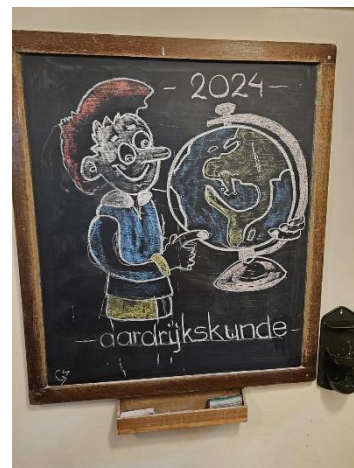 - 2024 -
- aardrijkskunde -